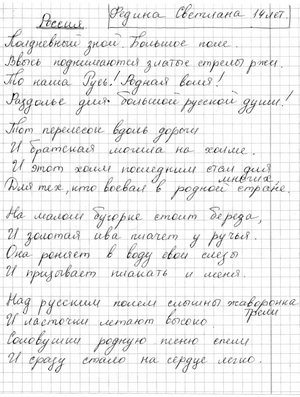 Россия
Федина Светлана 14 лет
Полдневный зной. Большое поле.
Ввысь поднимаются златые стрелы ржи.
То наша Русь! Родная воля!
Раздолье для большой русской души!
Тот перелесок вдоль дороги
И братская могила на холме.
И этот холм последним стал для многих
Для тех, кто воевал в родной стране.
На малом бугорке стоит береза,
И золотая ива плачет у ручья.
Она роняет в воду свои слезы
И призывает плакать и меня.
Над русским полем слышны жаворонка трели
И ласточки летают высоко.
Соловушки родную песню спели
И сразу стало на сердце легко.